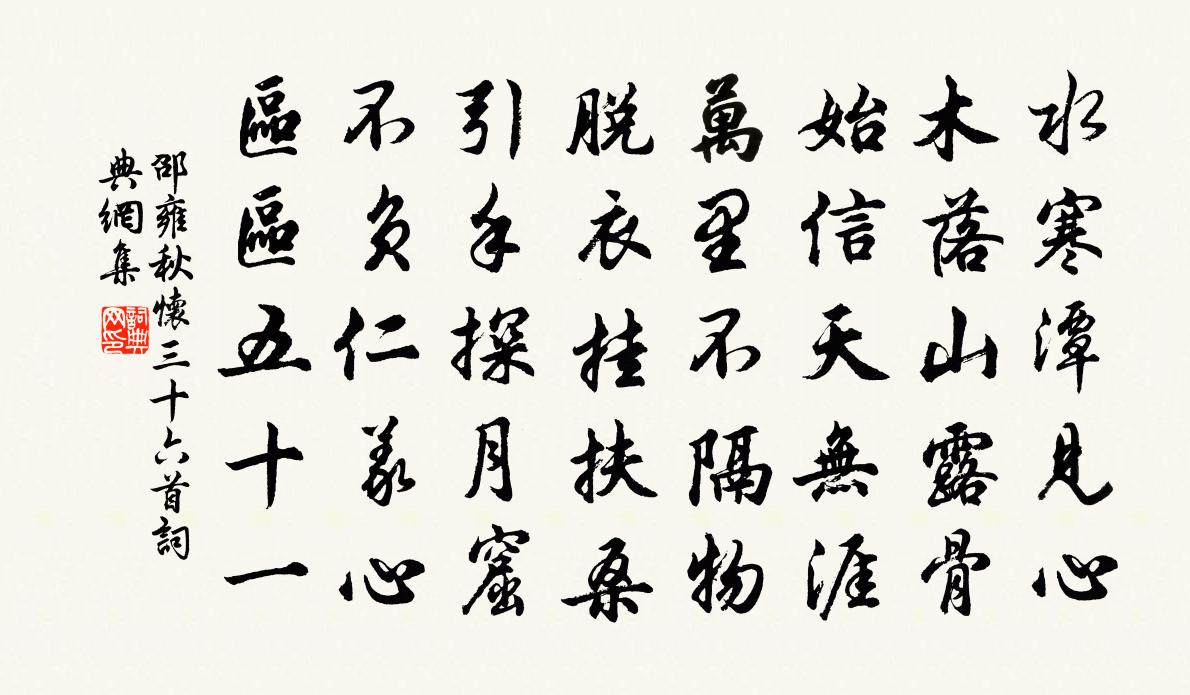 水寒潭見心
木落山露骨
始信天無涯
萬里不隔物
脱衣挂扶桑
引手探月窟
不負仁義心
區區五十一
邵雍秋懷三十六首詞
典網集
詞典
网印